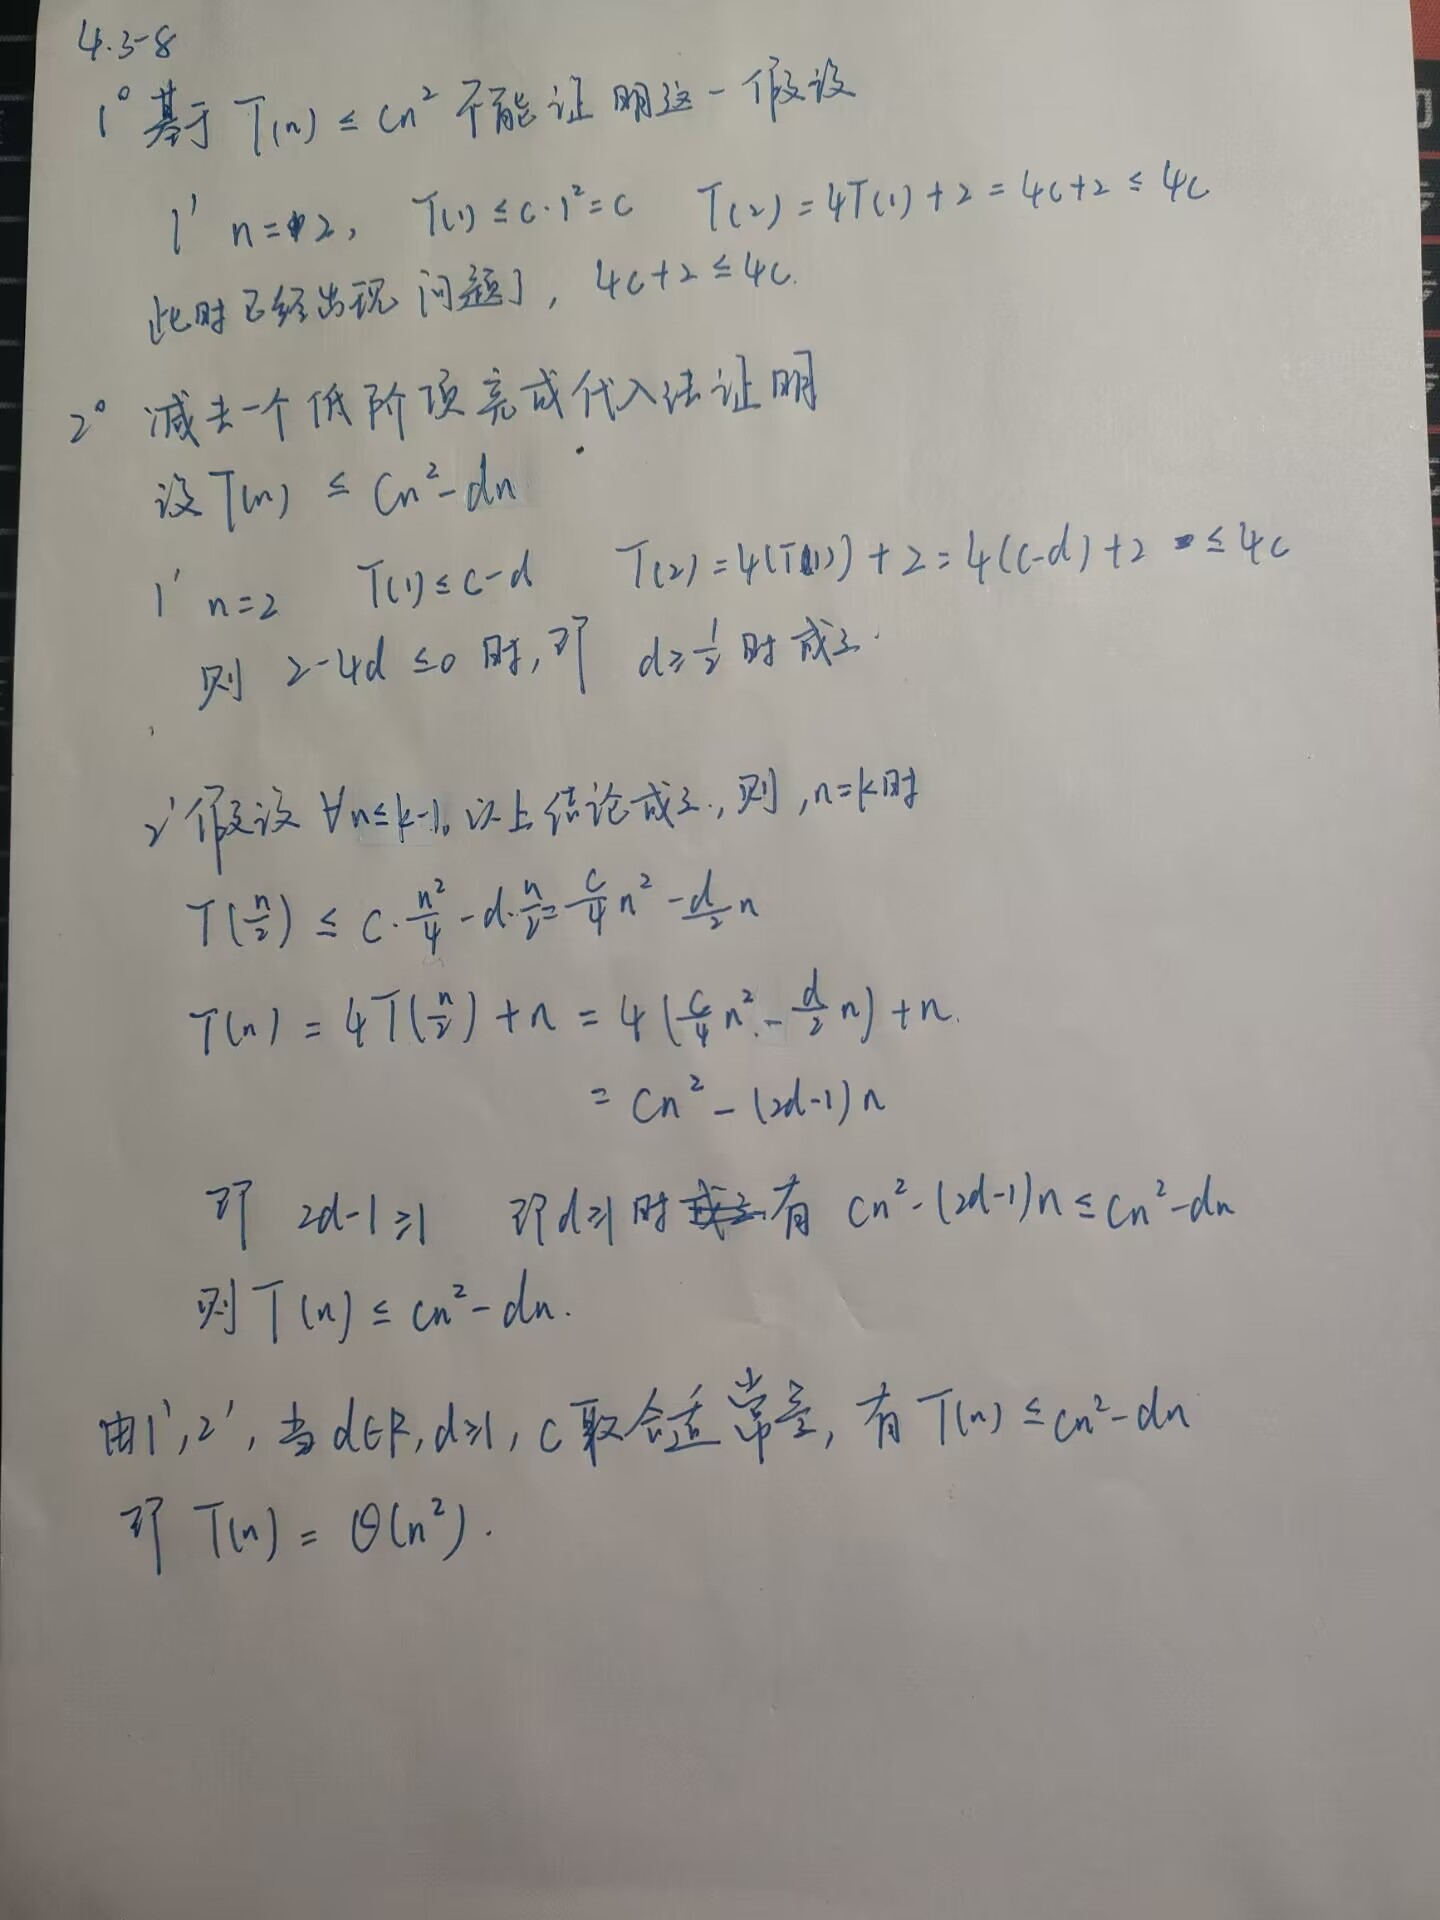 4.3-8
1° 基于 T(n) ≤ cn² 不能证明这一假设
1' n=2, T(1) ≤ c·1²=c T(2)=4T(1)+2=4c+2≤4c
此时已经出现问题了, 4c+2≤4c.
2° 减去一个低阶项完成代入法证明
设T(n) ≤ cn²-dn
1' n=2 T(1)≤c-d T(2)=4(T(1))+2=4(c-d)+2 ≤4c
则 2-4d ≤0 时,即 d≥½ 时成立.
2' 假设 ∀n≤k-1, 以上结论成立,则,n=k时
T(n/2) ≤ c·n²/4 - d·n/2 = c/4 n² - d/2 n
T(n) = 4T(n/2)+n = 4(c/4 n² - d/2 n)+n.
= cn² - (2d-1)n
即 2d-1≥1 即d≥1时 有 cn²-(2d-1)n≤cn²-dn
则T(n)≤cn²-dn.
由1',2', 当d∈R,d≥1, c取合适常量, 有T(n)≤cn²-dn
即 T(n) = Θ(n²).